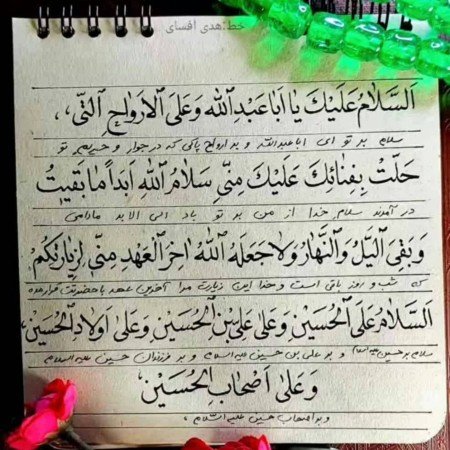 خط:هدی افسای
اَلسَّلامُ عَلَيْكَ يا اَبا عَبْدِ اللّٰهِ وَعَلَى الْاَرْواحِ الَّتى
سلام بر تو ای اباعبدالله و بر ارواح پاکی که در جوار و حریم تو
حَلَّتْ بِفِنائِكَ عَلَيْكَ مِنّى سَلامُ اللّٰهِ اَبَداً ما بَقيتُ
در آمدند سلام خدا از من بر تو باد الی الابد مادامی
وَ بَقِىَ الَّيْلُ وَالنَّهارُ وَلا جَعَلَهُ اللّٰهُ اخِرَ الْعَهْدِ مِنّى لِزِيارَتِكُمْ
که شب و روز باقی است و خدا این زیارت مرا آخرین عهد با حضرتت قرار ندهد
اَلسَّلامُ عَلَى الْحُسَيْنِ وَعَلى عَلِىِّ بْنِ الْحُسَيْنِ وَعَلى اَوْلادِ الْحُسَيْنِ
سلام بر حسین علیه السلام و بر علی بن حسین علیه السلام و بر فرزندان حسین علیه السلام
وَ عَلى اَصْحابِ الْحُسَيْنِ
و بر اصحاب حسین علیه السلام